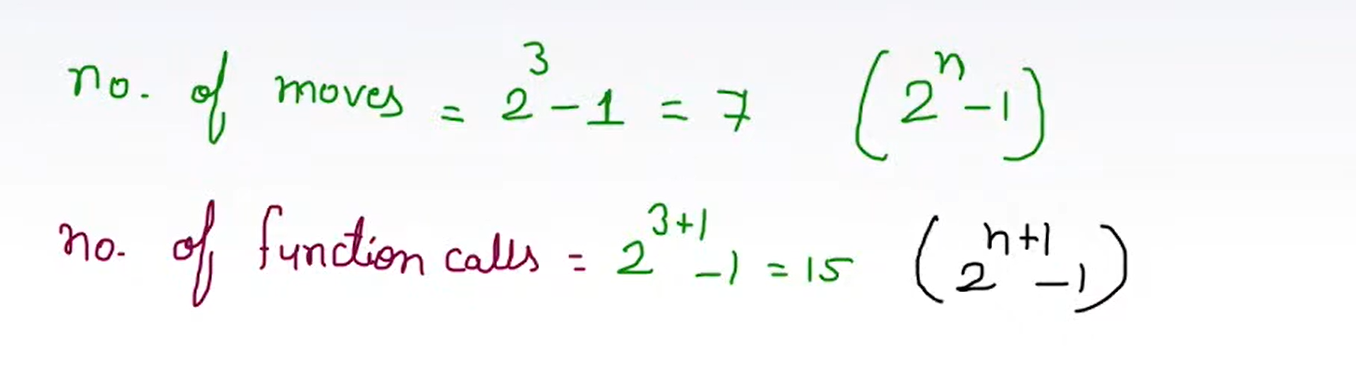 no. of moves = 2³ - 1 = 7 (2ⁿ - 1)
no. of function calls = 2³⁺¹ - 1 = 15 (2ⁿ⁺¹ - 1)